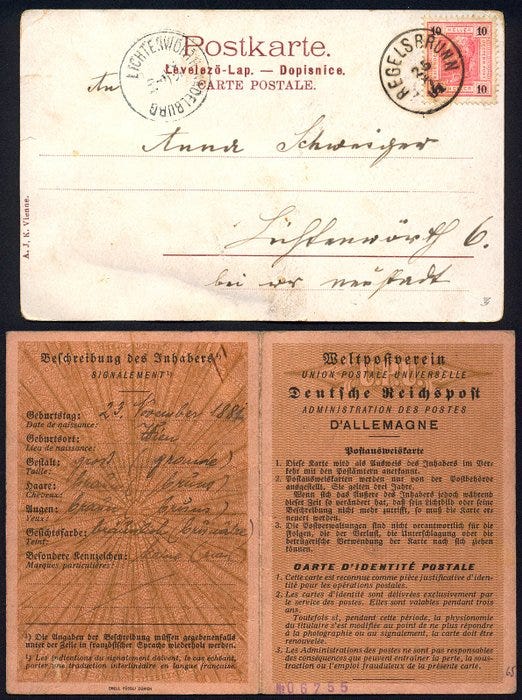 Postkarte.
Levelező-Lap. — Dopisnice.
CARTE POSTALE.
LICHTENWÖRTH-NADELBURG
REGELSBRUNN
10 HELLER 10
10 10
An
Anna Schweiger
Lichtenwörth 6.
bei wr neustadt
A. J. K. Vienne.
Beschreibung des Inhabers¹)
SIGNALEMENT¹)
Geburtstag: 23. November 1886
Date de naissance:
Geburtsort: Wien
Lieu de naissance:
Gestalt: gross (grande)
Taille:
Haare: bruns
Cheveux:
Augen: braun bruns
Yeux:
Gesichtsfarbe: bräunlich (brunâtre)
Teint:
Besondere Kennzeichen: keine
Marques particulières:
¹) Die Angaben der Beschreibung müssen gegebenenfalls
unter der Zeile in französischer Sprache wiederholt werden.
¹) Les indications du signalement doivent, le cas échéant,
porter une traduction interlinéaire en langue française.
Weltpostverein
UNION POSTALE UNIVERSELLE
Deutsche Reichspost
ADMINISTRATION DES POSTES
D'ALLEMAGNE
Postausweiskarte
1. Diese Karte wird als Ausweis des Inhabers im Verkehr
mit den Postämtern anerkannt.
2. Postausweiskarten werden nur von der Postbehörde
ausgestellt. Sie gelten drei Jahre.
Wenn sich das Äußere des Inhabers jedoch während
dieser Zeit so verändert hat, daß sein Lichtbild oder seine
Beschreibung nicht mehr zutrifft, so muß die Karte erneuert
werden.
3. Die Postverwaltungen sind nicht verantwortlich für die
Folgen, die der Verlust, die Unterschlagung oder die
betrügerische Verwendung der Karte nach sich ziehen
können.
CARTE D'IDENTITÉ POSTALE
1. Cette carte est reconnue comme pièce justificative d'identité
pour les opérations postales.
2. Les cartes d'identité sont délivrées exclusivement par
le service des postes. Elles sont valables pendant trois
ans.
Toutefois si, pendant cette période, la physionomie
du titulaire s'est modifiée au point de ne plus répondre
à la photographie ou au signalement, la carte doit être
renouvelée.
3. Les Administrations des postes ne sont pas responsables
des conséquences que peuvent entraîner la perte, la soustraction
ou l'emploi frauduleux de la présente carte.
№ 06755
65